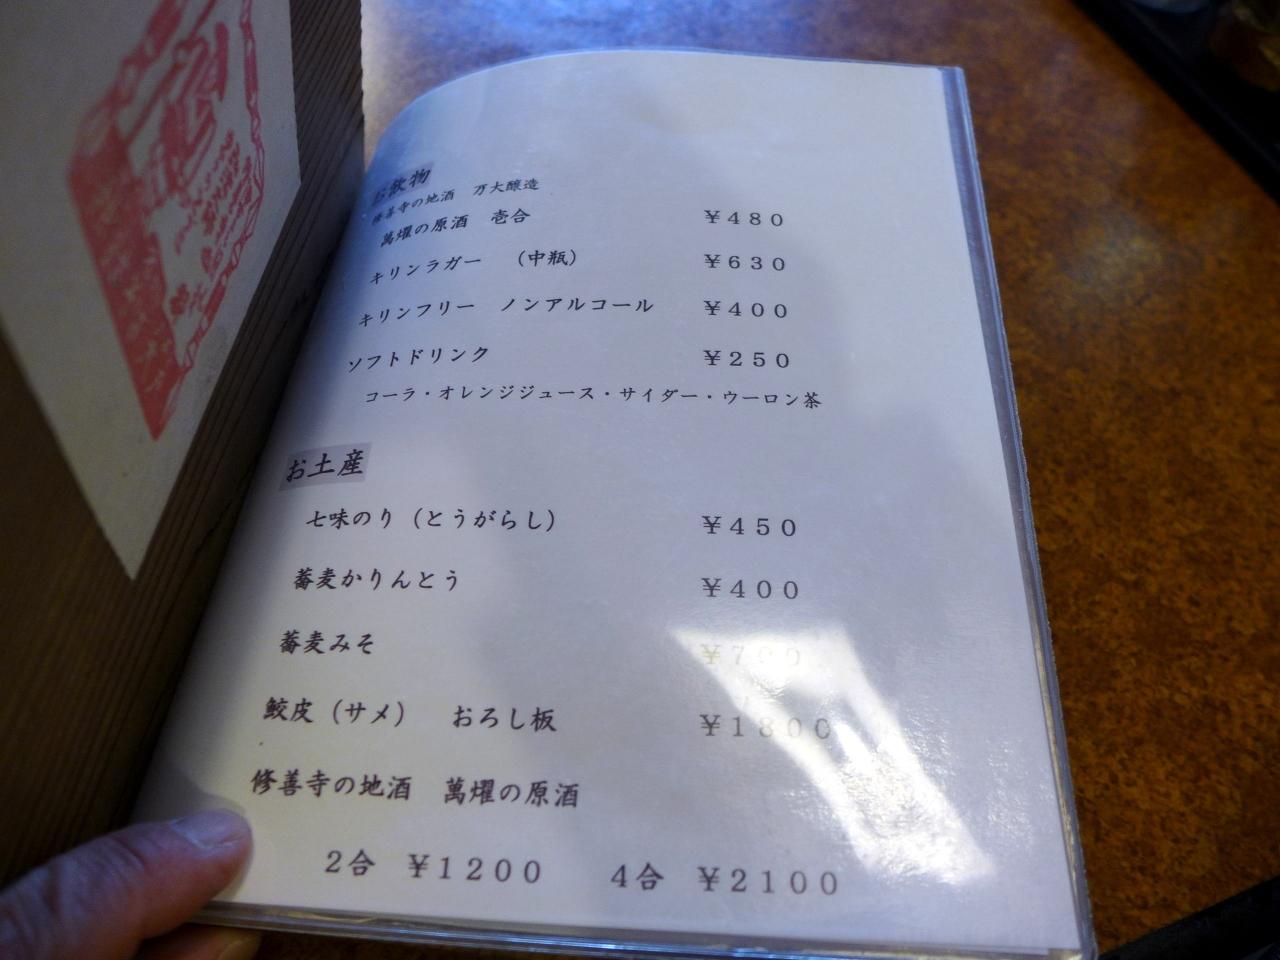 お飲物
修善寺の地酒　万大醸造
萬燿の原酒　壱合　¥480
キリンラガー　（中瓶）　¥630
キリンフリー　ノンアルコール　¥400
ソフトドリンク　¥250
コーラ・オレンジジュース・サイダー・ウーロン茶
お土産
七味のり（とうがらし）　¥450
蕎麦かりんとう　¥400
蕎麦みそ　¥700
鮫皮（サメ）　おろし板　¥1800
修善寺の地酒　萬燿の原酒
2合　¥1200　4合　¥2100